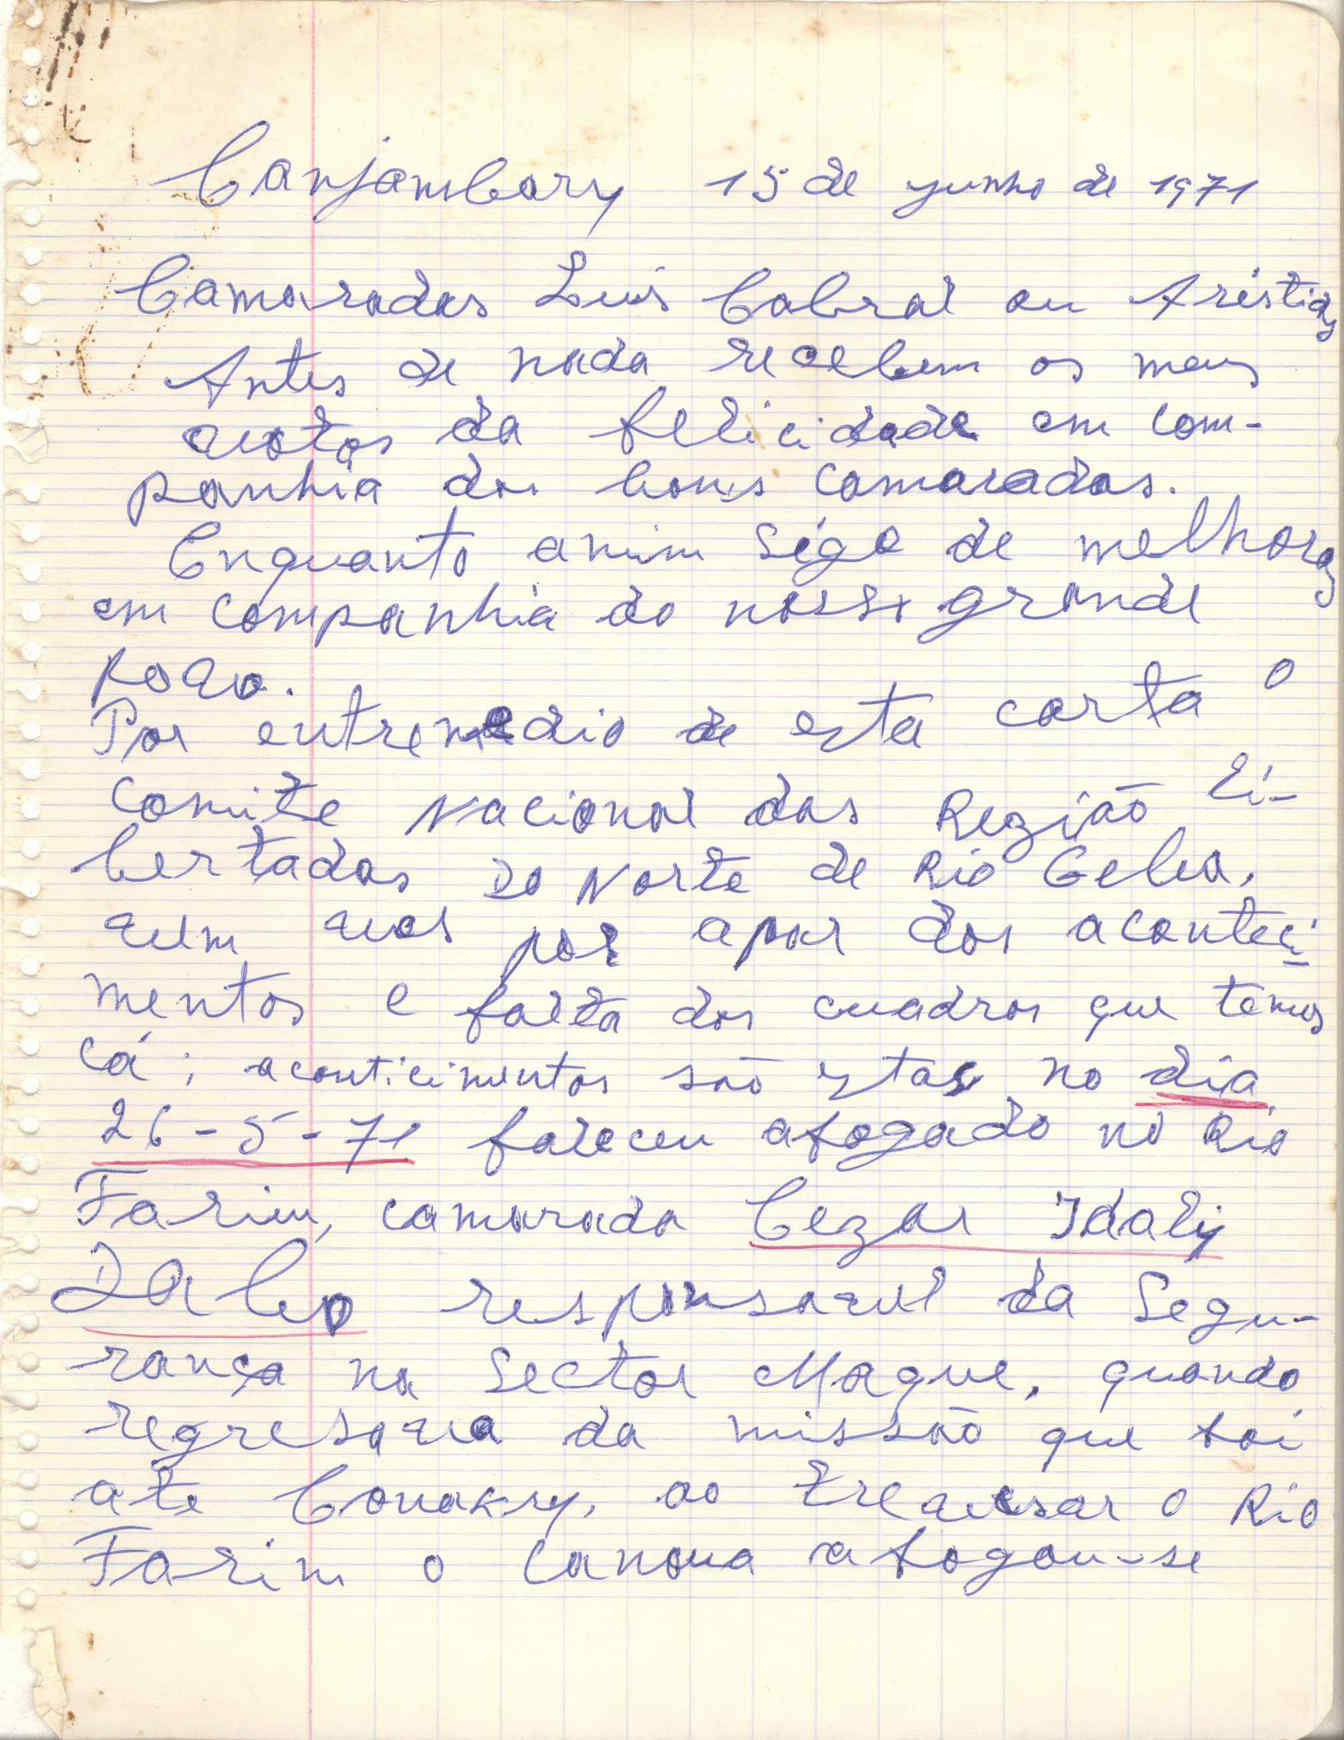 Canjambary 15 de junho de 1971
Camaradas Luis Cabral ou Aristides
Antes de nada recebem os meus
votos da felicidade em com-
panhia dos bons camaradas.
Enquanto amim sigo de melhoras
em companhia do nosso grande
povo.
Por entremedio de esta carta o
comite Nacional das Região Li-
bertadas do Norte de Rio Geba,
vem vos por apar dos aconteci
mentos e falta dos cuadros que temos
cá; aconticimentos são estas no dia
26-5-71 faleceu afogado no Rio
Farim, camarada Cezar Idaly
Dabo responsavel da Segu-
rança na Sector Maque, quando
regresava da missão que foi
ate Conakry, ao trevesar o Rio
Farim o canoua afogou-se